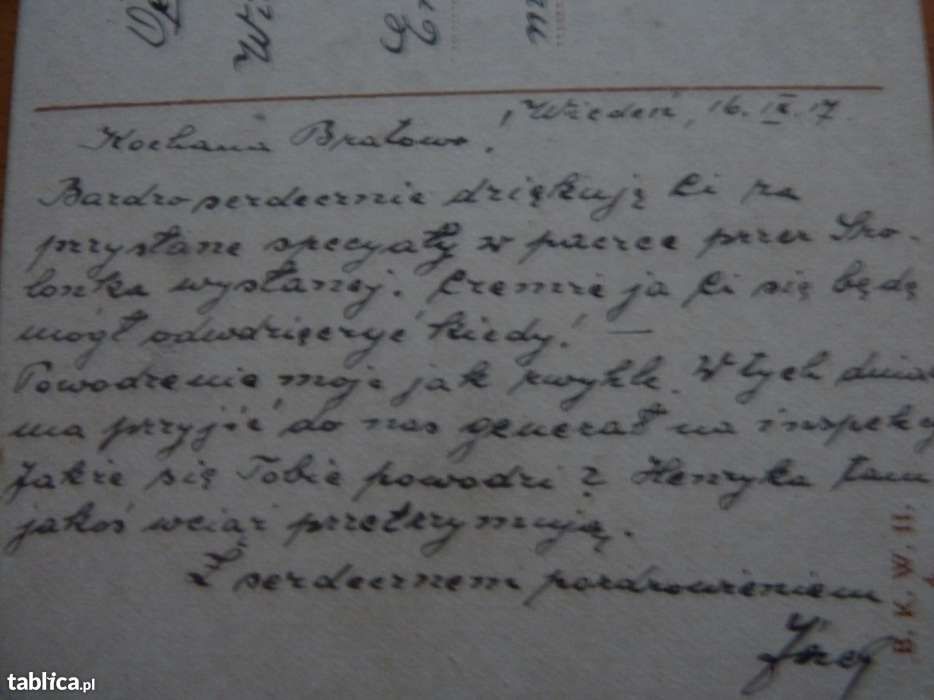 Wi
Wiedeń, 16. IX. 17.
Kochana Bratowo!
Bardzo serdecznie dziękuję Ci za
przysłane specyały w paczce przez Sko-
lonka wysłanej. Czemże ja Ci się będę
mógł odwdzięczyć kiedy! —
Powodzenie moje jak zwykle. W tych dniach
ma przyjść do nas generał na inspekcy
Jakże się Tobie powodzi? Henryka tam
jakoś wciąż przetrzymują.
Z serdecznem pozdrowieniem
Józef
B. K. W. II.
tablica.pl